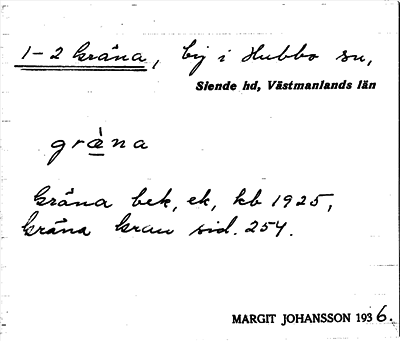 1-2 Gräna, by i Hubbo sn,
Siende hd, Västmanlands län
grä̀na
Gräna bek, ek, kb 1925,
Gräna Gran sid. 254.
MARGIT JOHANSSON 1936.